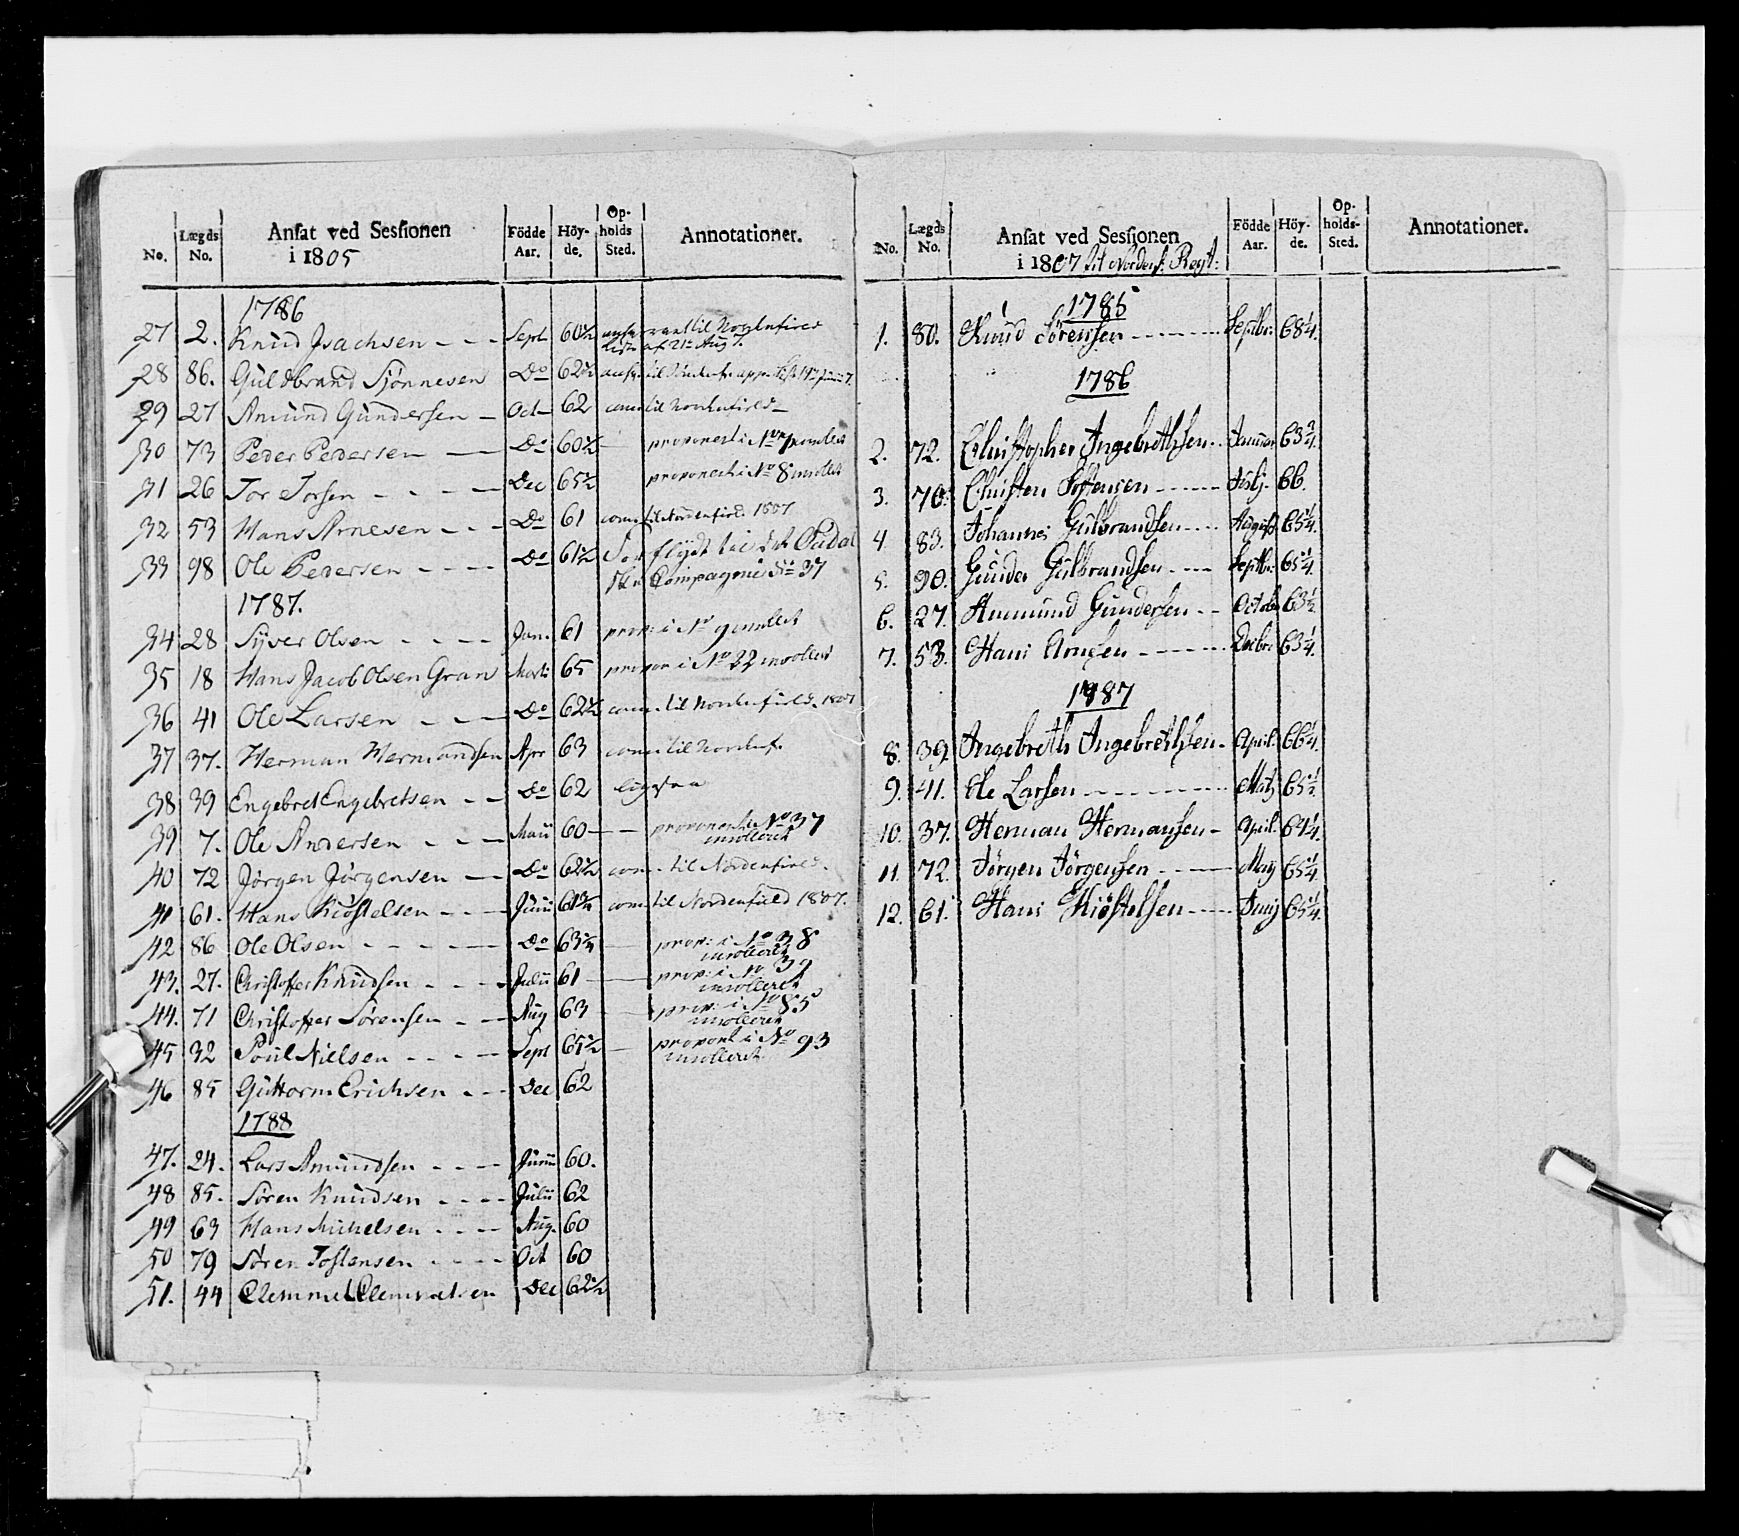 No. Lægds No. Ansat ved Sessionen i 1805 Födde Aar. Höyde. Opholds Sted. Annotationer.
1786
27 2. Knud Isachsen - - - Sept 60½
af 21 Aug 7.
28 86. Guldbrand Sjönnesen Do 62½
29 27 Amund Gundersen - Oct 62 til Nordenfields
30 73 Peder Pedersen — Do 60½ proponert i No 7 inrollert
31 26 Tor Torsen - - - - Dec 65½ proponert i No 8 inrollert
32 53 Hans Arnesen - - - Do 61 til Nordenfield 1807
33 98 Ole Pedersen - - - - Do 61½ Forflydt til det
Compagnie No 37
1787.
34 28 Syver Olsen - - - - Jan. 61 prop: i No 9 inrollert
35 18 Hans Jacob Olsen Gran Marti 65 propon i No 22 inrollert
36 41 Ole Larsen - - - Do 62½ til Nordenfields 1807
37 37. Herman Hermandsen Apr 63 til Nordenf.
38 39 Engebret Engebretsen - - Do 62 ligesaa
39 7. Ole Andersen - - - Maii 60 — - proponert i No 37
inrolleret
40 72 Jørgen Jørgensen — Do 62½ til Nordenfields.
41 61. Hans Kiöstelsen - - - Junii 61¾ til Nordenfield 1807.
42 86 Ole Olsen - - - - - Do 63¾ prop: i No 38
inrolleret
43. 27. Christoffer Knudsen - - - Julii 61 — prop: i No 39
inrolleret
44. 71 Christoffer Sørensen - - Aug 63 prop: i No 85
inrolleret
45 32 Poul Nielsen - - - - Sept 65½ proport i No 93
inrolleret
46 85 Guttorm Erichsen - - Dec 62
1788
47. 24. Lars Amundsen - - - Junii 60.
48 85. Søren Knudsen - - - - Julii 62
49 63 Hans Michelsen - - - Aug. 60
50 79 Søren Tostensen - - - - Oct 60
51. 44 Clemmet Clemmetsen Dec 62½
No. Lægds No. Ansat ved Sessionen i 1807 til Nordenf: Regt: Födde Aar. Höyde. Opholds-Sted. Annotationer.
1785
1. 80. Knud Sörensen - - - - - Septbr. 68¼.
1786
2. 72. Christopher Ingebrethsen - - Januar 63¾.
3. 70. Christen Tostensen - - - - - 66.
4 83. Johannes Gulbrandsen - - - August 65¼.
5. 90. Gunder Gulbrandsen - - - Septbr. 65¼.
6. 27. Ammund Gundersen - - October 63½.
7. 53. Hans Arnesen - - - - - Decbr. 63¼.
1787
8. 39. Ingebreth Ingebrethsen - April. 66¼.
9. 41. Ole Larsen - - - - - - - Marty 65½.
10. 37. Herman Hermansen - April. 64¼.
11. 72. Jörgen Jörgensen - - - - May 65¼.
12. 61. Hans Kiöstelsen - - - - Juny 65¼.